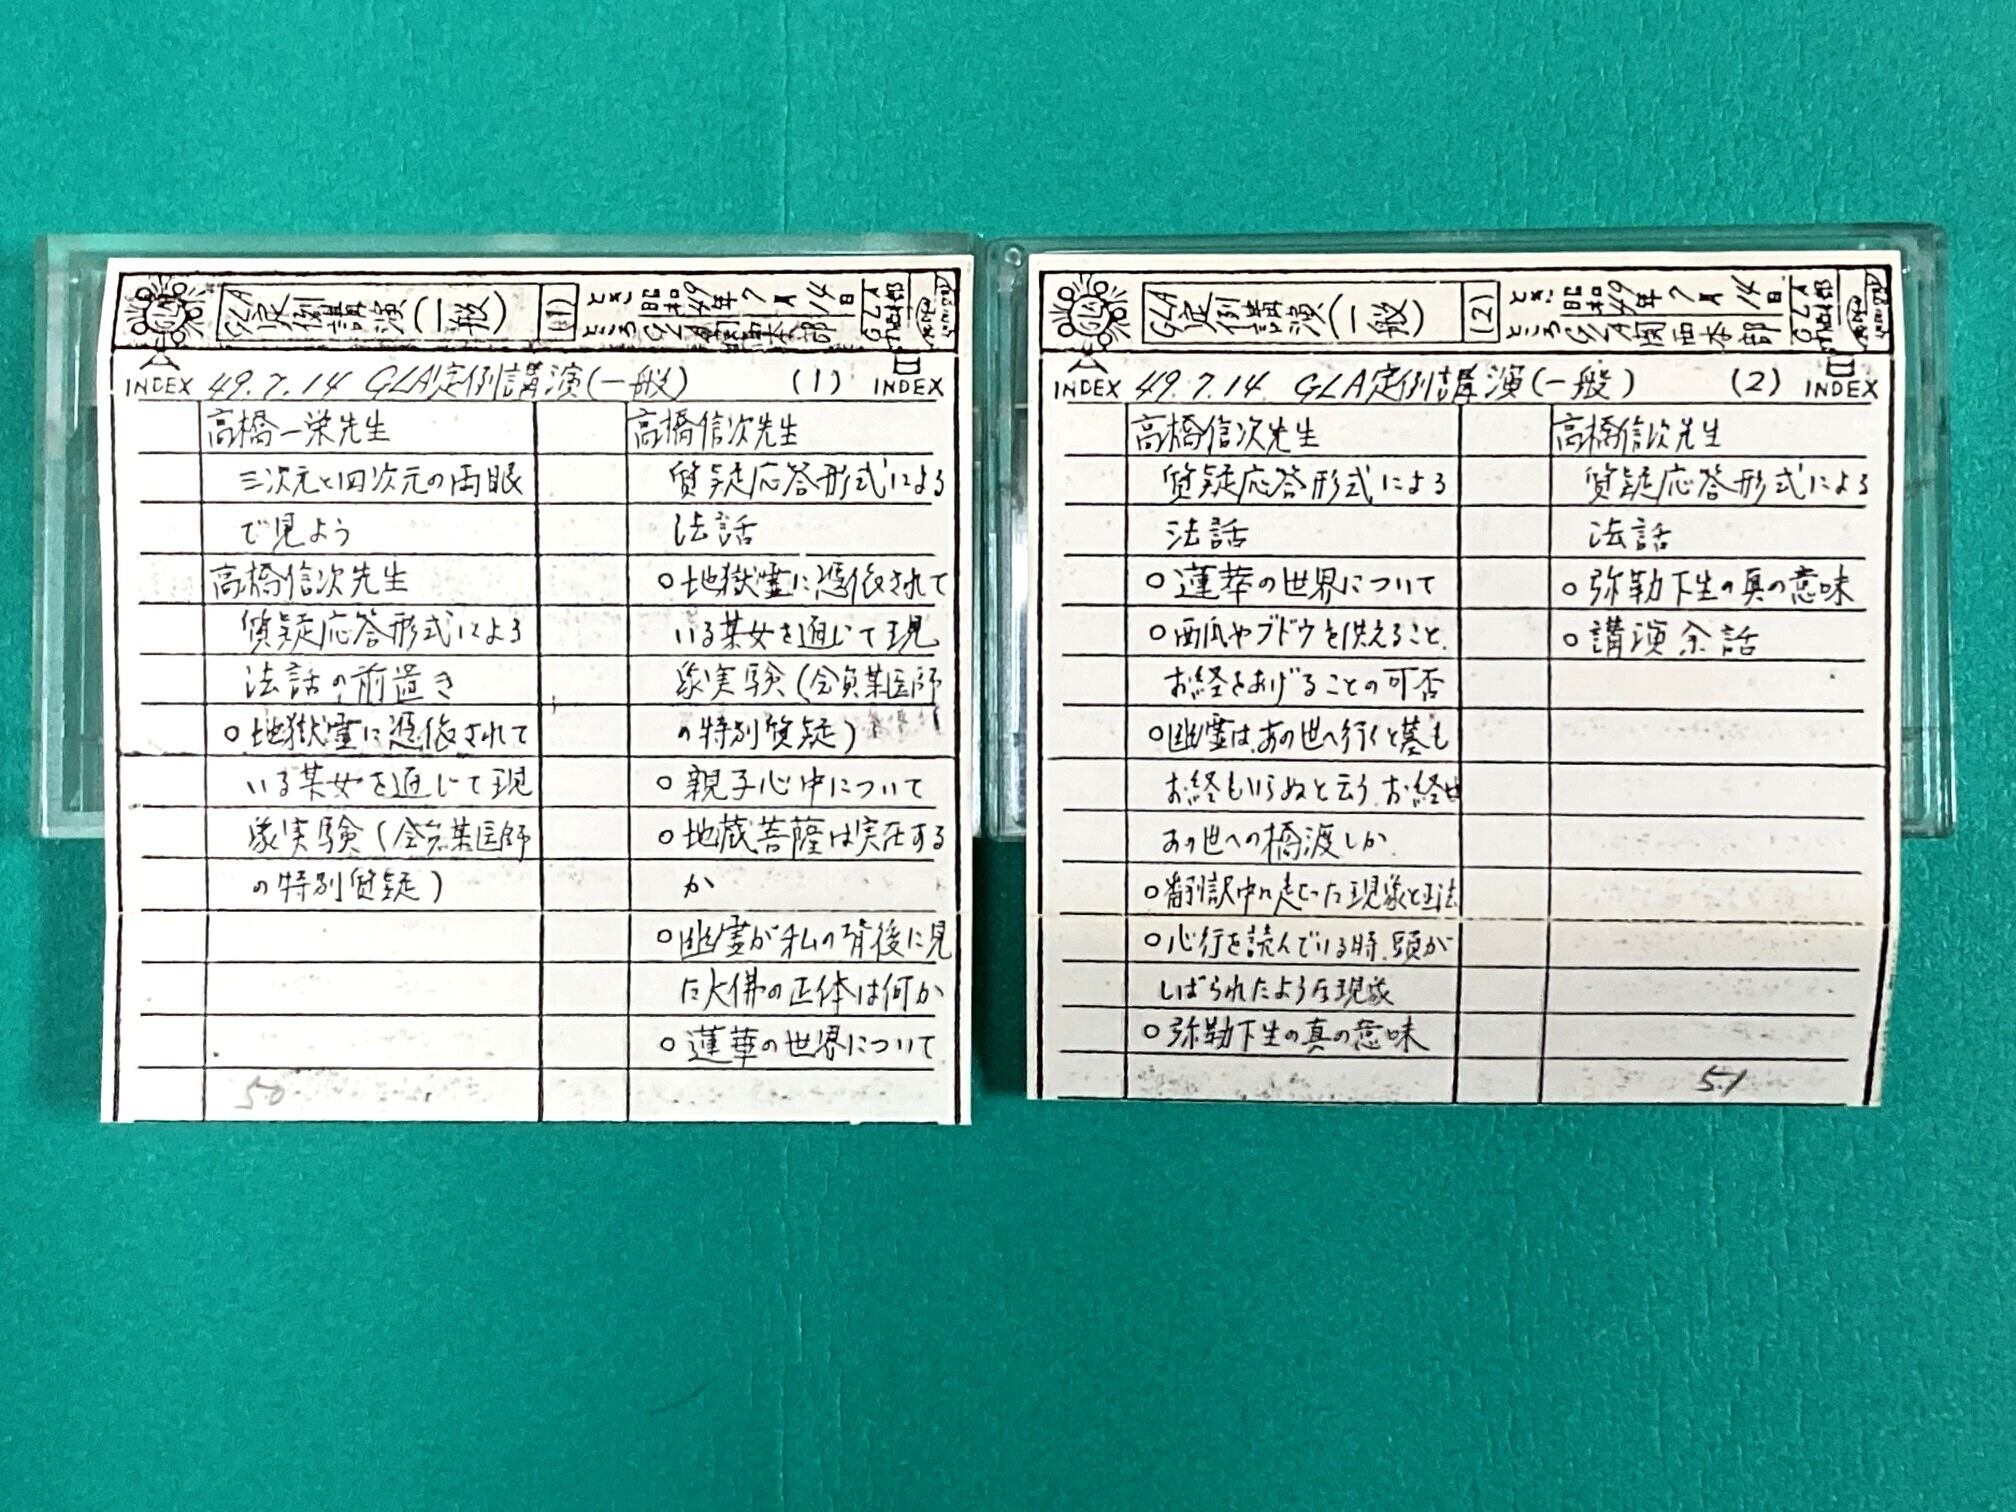 GLA
GLA定例講演(一般)
(1)
とき 昭和49年7月14日
ところ GLA関西本部
GLA
INDEX 49.7.14 GLA定例講演(一般) (1) INDEX
高橋一栄先生
三次元と四次元の両眼
で見よう
高橋信次先生
質疑応答形式による
法話の前置き
○地獄霊に憑依されて
いる某女を通じて現
象実験(会員某医師
の特別質疑)
50
高橋信次先生
質疑応答形式による
法話
○地獄霊に憑依されて
いる某女を通じて現
象実験(会員某医師
の特別質疑)
○親子心中について
○地蔵菩薩は実在する
か
○幽霊が私の背後に見
た大佛の正体は何か
○蓮華の世界について
GLA
GLA定例講演(一般)
(2)
とき 昭和49年7月14日
ところ GLA関西本部
GLA
INDEX 49.7.14 GLA定例講演(一般) (2) INDEX
高橋信次先生
質疑応答形式による
法話
○蓮華の世界について
○西瓜やブドウを供えること、
お経をあげることの可否
○幽霊は、あの世へ行くと墓も
お経もいらぬと云う、お経は
あの世への橋渡しか
○翻訳中に起こった現象と
○心行を読んでいる時、頭が
しばられたような現象
○弥勒下生の真の意味
高橋信次先生
質疑応答形式による
法話
○弥勒下生の真の意味
○講演余話
51